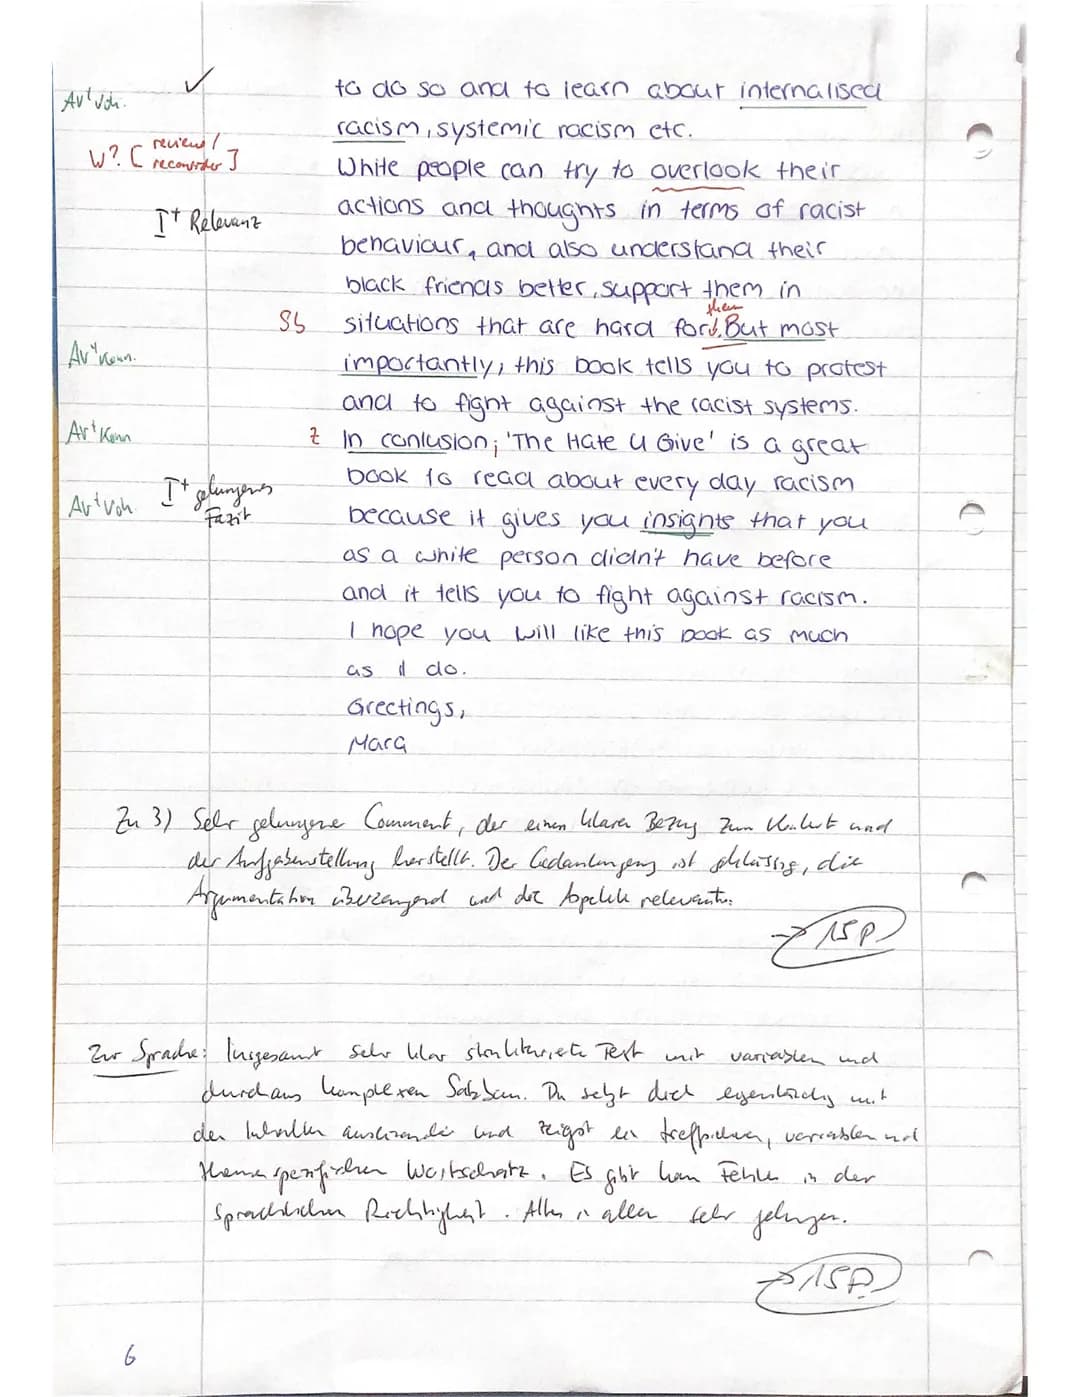 to do so and to learn about internalised
Av+ Voh.
racism, systemic racism etc.
W? [review/
reconsider]
White people can try to overlook their
actions and thoughts in terms of racist
I+ Relevanz
behaviour, and also understand their
black friends better, support them in
them
Sb situations that are hard for. But most
Av+ Konn.
importantly, this book tells you to protest
and to fight against the racist systems.
Av+ Konn
Z In conlusion, 'The Hate U Give' is a great
book to read about every day racism
I+ gelungenes
Fazit
Av+ Voh.
because it gives you insights that you
as a white person didn't have before
and it tells you to fight against racism.
I hope you will like this book as much
as I do.
Greetings,
Mara
Zu 3) Sehr gelungener Comment, der einen klaren Bezug zum Kontext und
der Aufgabenstellung herstellt. Der Gedankengang ist schlüssig, die
Argumentation überzeugend und die Appelle relevant.
→ 15P
Zur Sprache: Insgesamt sehr klar strukturierter Text mit variablen und
durchaus komplexen Satzbau. Du setzt dich eigenständig mit
den Inhalten auseinander und zeigst ein treffsicheren, variablen und
themenspezifischen Wortschatz. Es gibt kaum Fehler in der
sprachlichen Richtigkeit. Alles in allem sehr gelungen.
→ 15P
6